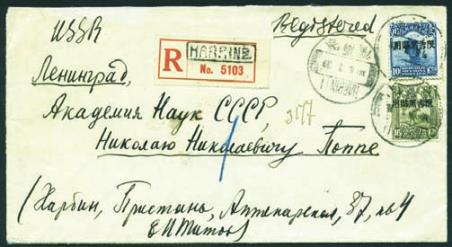 USSR
Registered
R
HARBIN 2
No. 5103
10
Ленинград,
Академия Наук СССР,
3177
16
Николаю Николаевичу Поппе
(Харбин, Пристань, Аптекарская, 37, кв 4
Е И Титов)